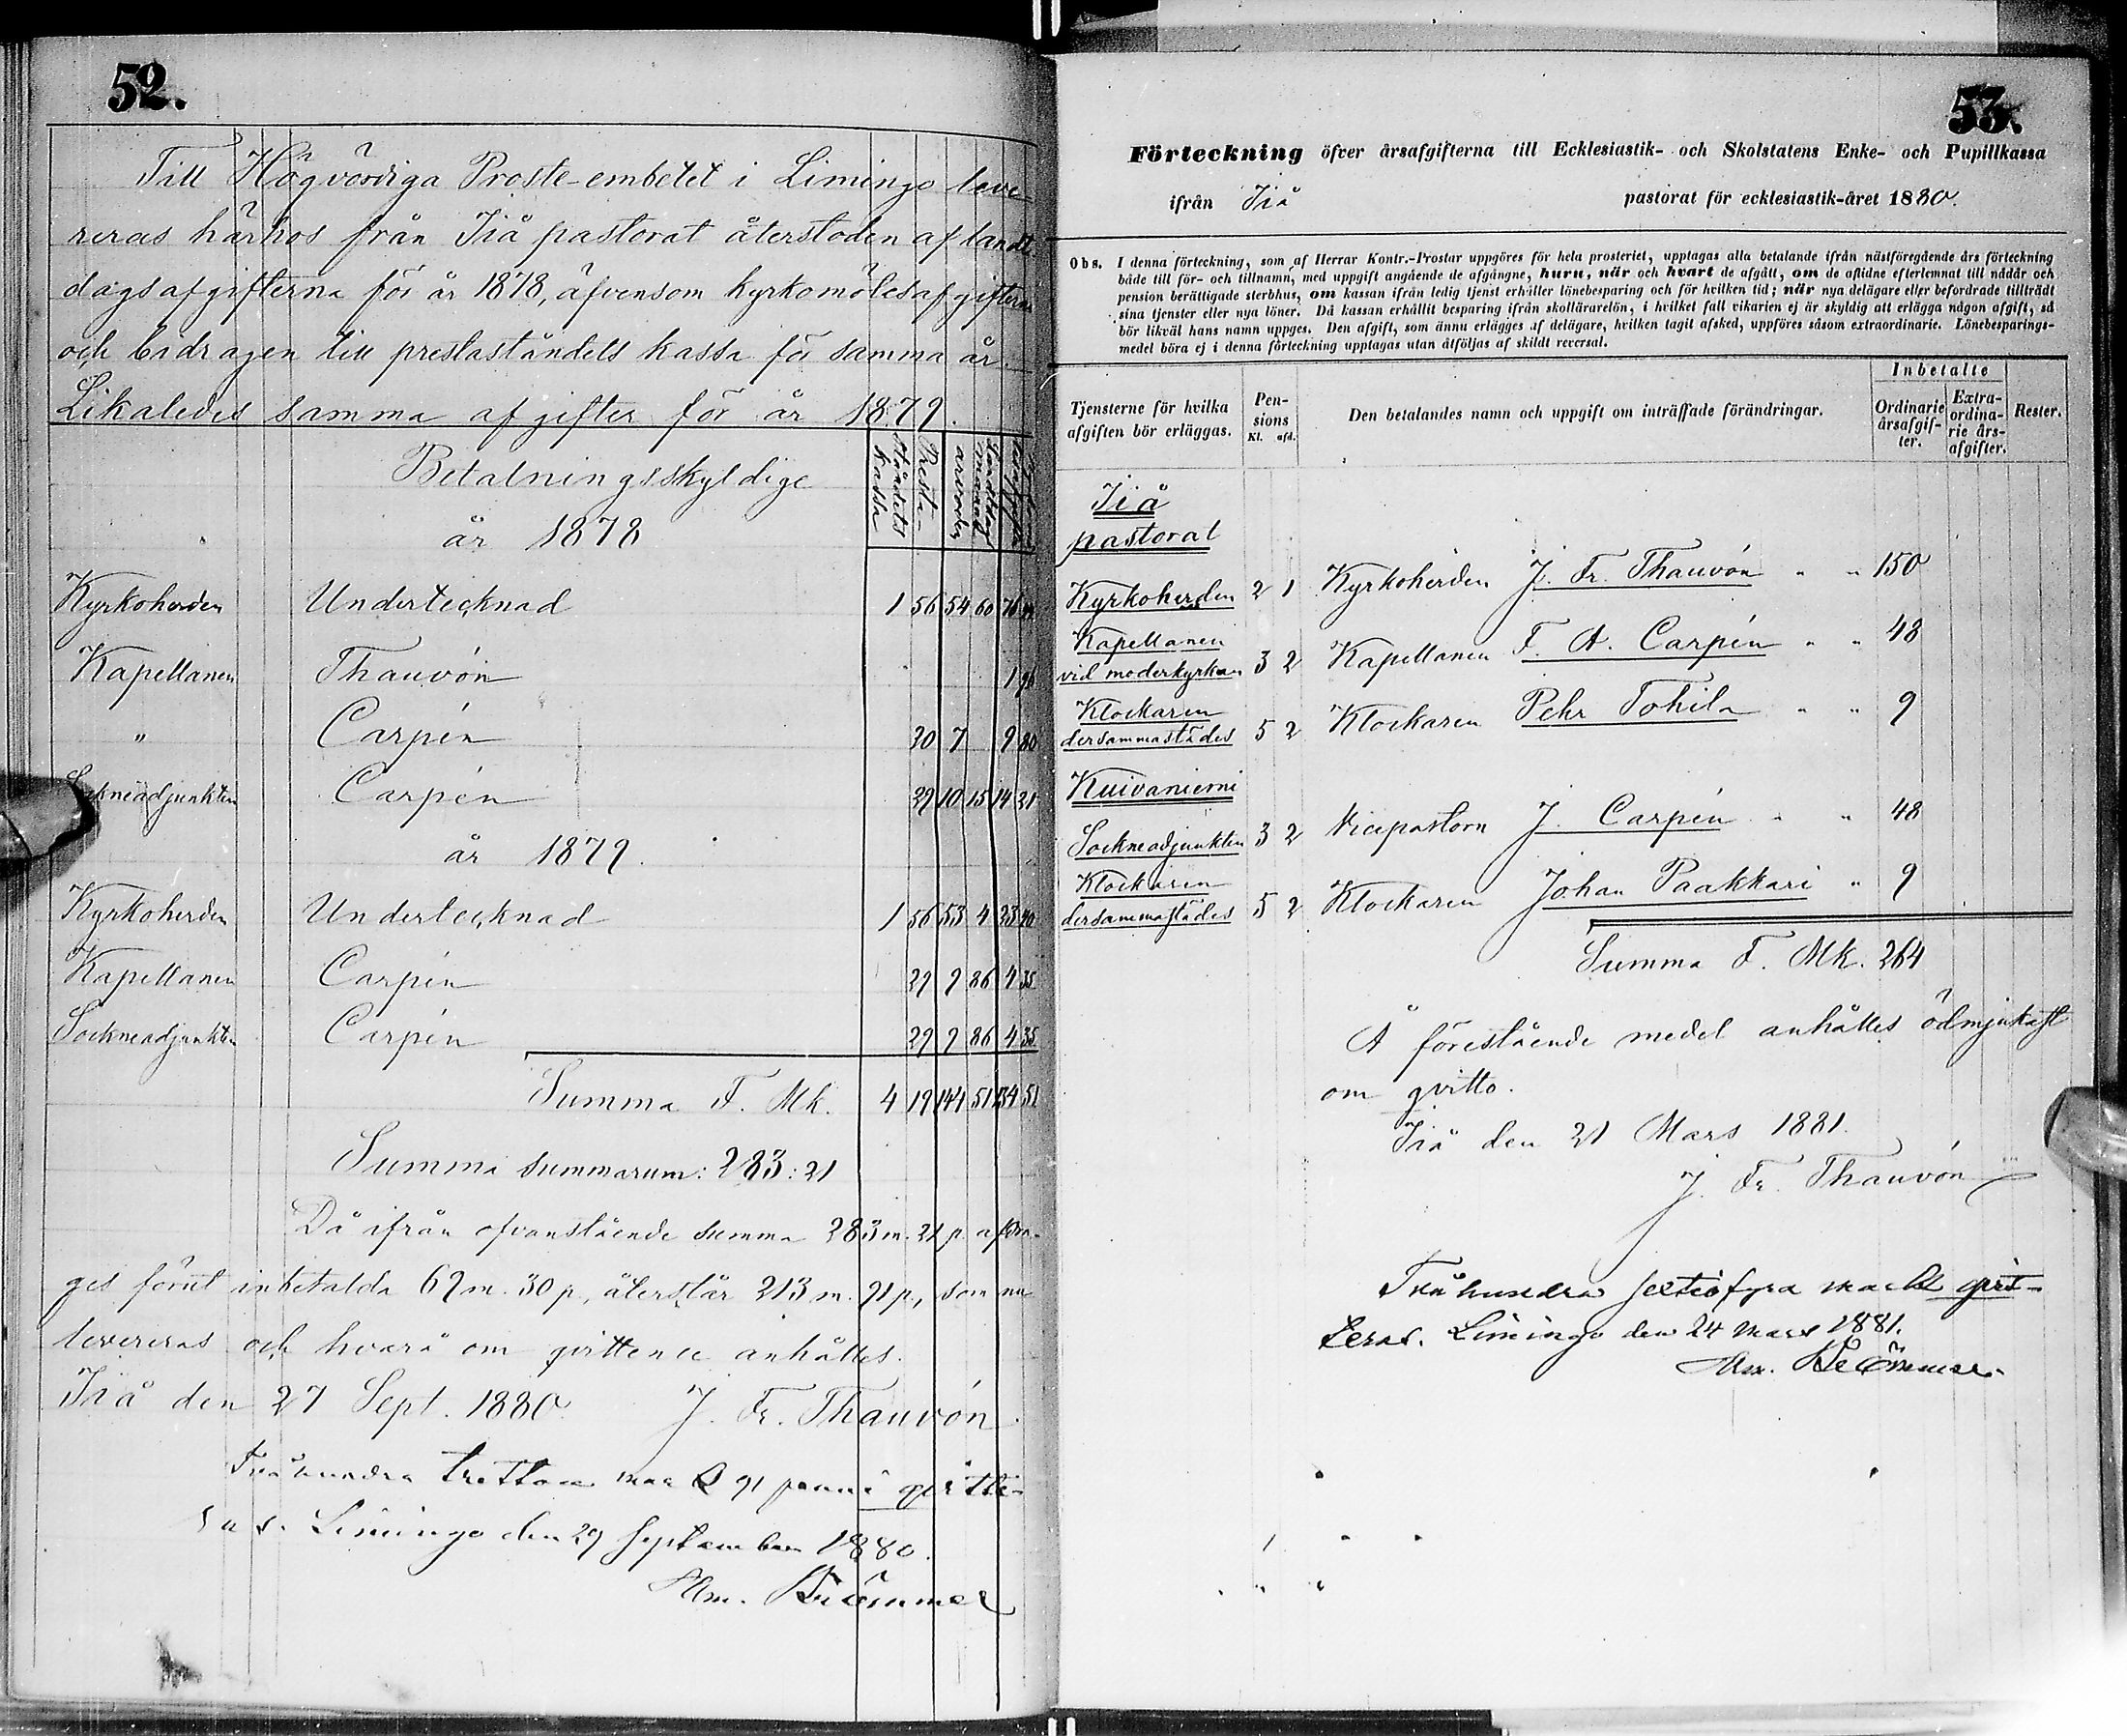 52.
Till Högvördiga Proste-embetet i Limingo leve-
reras härhos från Iiå pastorat återstoden af landt-
dagsafgifterna för år 1878, äfvensom kyrkomötesafgifterna
och bidragen till prestaståndets kassa för samma år.
Likaledes samma afgifter för år 1879.
Betalningsskyldige
Ståndets kassa
år 1878
Kyrkoherden Undertecknad 1 56 54 60 76
Kapellanen Thauvón 1 96
" Carpén 30 7 9 80
Sockneadjunkten Carpén 29 10 15 14 21
år 1879.
Kyrkoherden Undertecknad 1 56 53 4 23 40
Kapellanen Carpén 29 9 86 4 35
Sockneadjunkten Carpén 29 9 86 4 35
Summa F. Mk. 4 19 144 51 134 51
Summa summarum: 283:21
Då ifrån ofvanstående summa 283 m. 21 p. afdra-
ges förut inbetalda 69 m. 30 p., återstår 213 m. 91 p., som nu
levereras och hvarå om qvittence anhålles.
Iiå den 27 Sept. 1880. J. Fr. Thauvón
Tvåhundra tretton mark 91 penni qvitte-
ras. Limingo den 29 September 1880.
53.
Förteckning öfver årsafgifterna till Ecklesiastik- och Skolstatens Enke- och Pupillkassa
ifrån Iiå pastorat för ecklesiastik-året 1880.
Obs. I denna förteckning, som af Herrar Kontr.-Prostar uppgöres för hela prosteriet, upptagas alla betalande ifrån nästföregående års förteckning
både till för- och tillnamn, med uppgift angående de afgångne, huru, när och hvart de afgått, om de aflidne efterlemnat till nådår och
pension berättigade sterbhus, om kassan ifrån ledig tjenst erhåller lönebesparing och för hvilken tid; när nya delägare eller befordrade tillträdt
sina tjenster eller nya löner. Då kassan erhållit besparing ifrån skollärarelön, i hvilket fall vikarien ej är skyldig att erlägga någon afgift, så
bör likväl hans namn uppges. Den afgift, som ännu erlägges af delägare, hvilken tagit afsked, uppföres såsom extraordinarie. Lönebesparings-
medel böra ej i denna förteckning upptagas utan åtföljas af skildt reversal.
Tjensterne för hvilka afgiften bör erläggas.
Pensions Kl. afd.
Den betalandes namn och uppgift om inträffade förändringar.
Inbetalte
Ordinarie årsafgifter.
Extraordinarie årsafgifter.
Rester.
Iiå
pastorat
Kyrkoherden 2 1 Kyrkoherden J. Fr. Thauvón " " 150
Kapellanen
vid moderkyrkan 3 2 Kapellanen F. A. Carpén " " 48
Klockaren
dersammastädes 5 2 Klockaren Pehr Tohila " " 9
Kuivaniemi
Sockneadjunkten 3 2 Vicepastorn J. Carpén " " 48
Klockaren
dersammastädes 5 2 Klockaren Johan Paakkari " 9
Summa F. Mk. 264
Å förestående medel anhålles ödmjukast
om qvitto.
Iiå den 21 Mars 1881.
J. Fr. Thauvón
Tvåhundra sextiofyra mark qvit-
teras. Limingo den 24 Mars 1881.